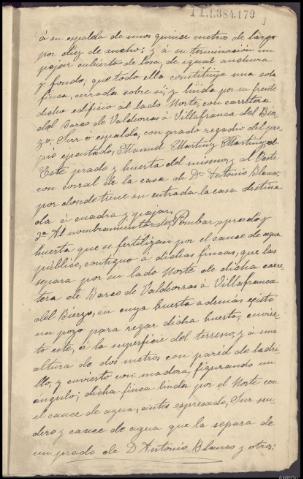 1 E.E.384.179
á su espalda de unos quince metros de largo
por diez de ancho; y á su terminación un
pajar cubierto de losa, de igual anchura
y fondo; que todo ello constituye una sola
finca, cerrada sobre sí; y linda por su frente
dicho edificio al lado Norte, con carretera
del Barco de Valdeorras á Villafranca del Bier
zo, Sur ó espalda, con prado regadío del pro
pio ejecutado, Manuel Martínez Martínez, al
Este prado y huerta del mismo, y al Oeste
con corral de la casa de Dn Antonio Blanco,
por donde tiene su entrada la casa destina
da á cuadra y pajar.
2a Al nombramiento de, prado y
huerta que se fertilizan por el cauce de agua
público, contiguo á dichas fincas, que las
separa por su lado Norte de dicha carre
tera de Barco de Valdeorras á Villafranca
del Bierzo, en cuya huerta además existe
un pozo para regar dicha huerta, cubier
to este, á la superficie del terreno, y á una
altura de dos metros con pared de ladri
llo, y cubierto con madera figurando un
ángulo; dicha finca linda por el Norte con
el cauce de agua, antes expresado, Sur sen
dero y cauce de agua que la separa de
un prado de D. Antonio Blanco y otro;